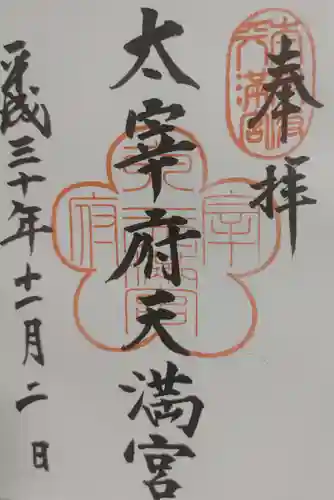 奉拝
太宰府天満宮
平成三十年十一月二日